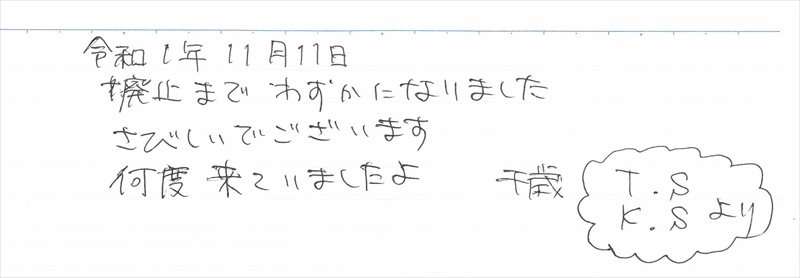 令和1年11月11日
廃止まで わずかになりました
さびしいでございます
何度 来ていましたよ
千歳 T.S
K.S より